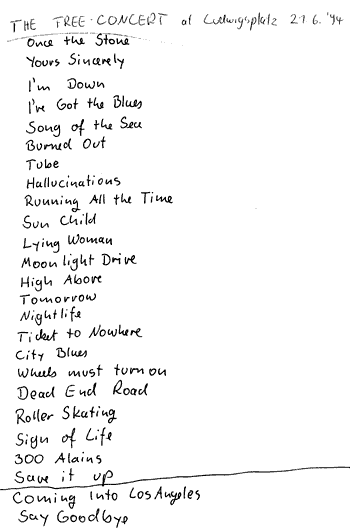 THE TREE-CONCERT at Ludwigsplatz 21.6.'94
Once the Stone
Yours Sincerely
I'm Down
I've Got the Blues
Song of the Sea
Burned Out
Tube
Hallucinations
Running All the Time
Sun Child
Lying Woman
Moonlight Drive
High Above
Tomorrow
Nightlife
Ticket to Nowhere
City Blues
Wheels must turn on
Dead End Road
Roller Skating
Sign of Life
300 Alains
Save it up
Coming Into Los Angeles
Say Goodbye